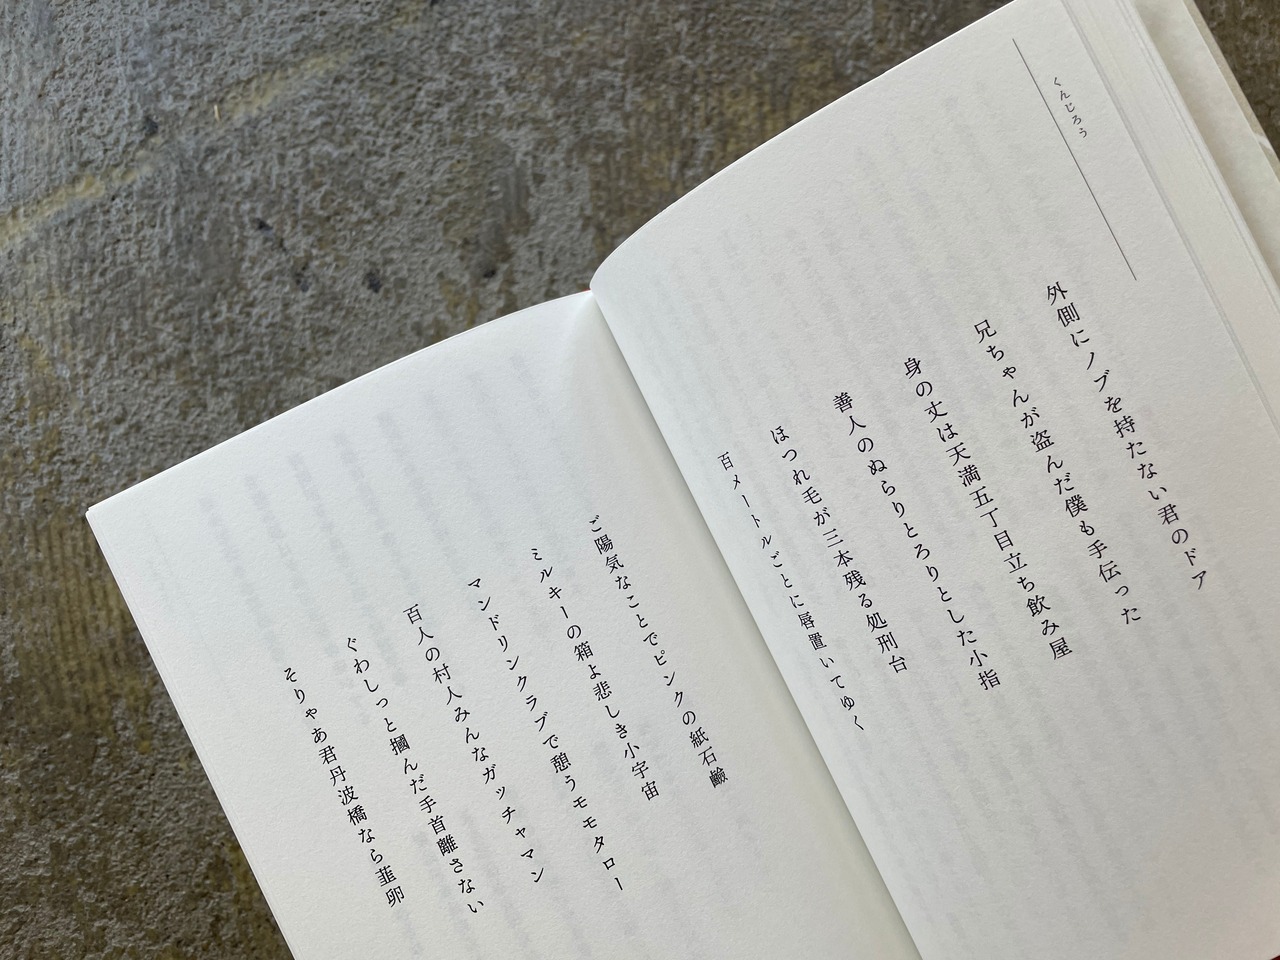 くんじろう
外側にノブを持たない君のドア
兄ちゃんが盗んだ僕も手伝った
身の丈は天満五丁目立ち飲み屋
善人のぬらりとろりとした小指
ほつれ毛が三本残る処刑台
百メートルごとに唇置いてゆく
ご陽気なことでピンクの紙石鹸
ミルキーの箱よ悲しき小宇宙
マンドリンクラブで憩うモモタロー
百人の村人みんなガッチャマン
ぐわしっと摑んだ手首離さない
そりゃあ君丹波橋なら韮卵